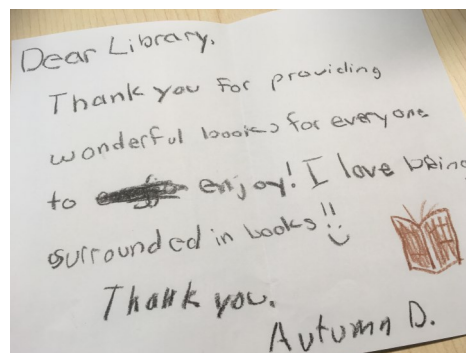 Dear Library,
Thank you for providing
wonderful books for everyone
to enjoy! I love being
surrounded in books!!
Thank you.
Autumn D.